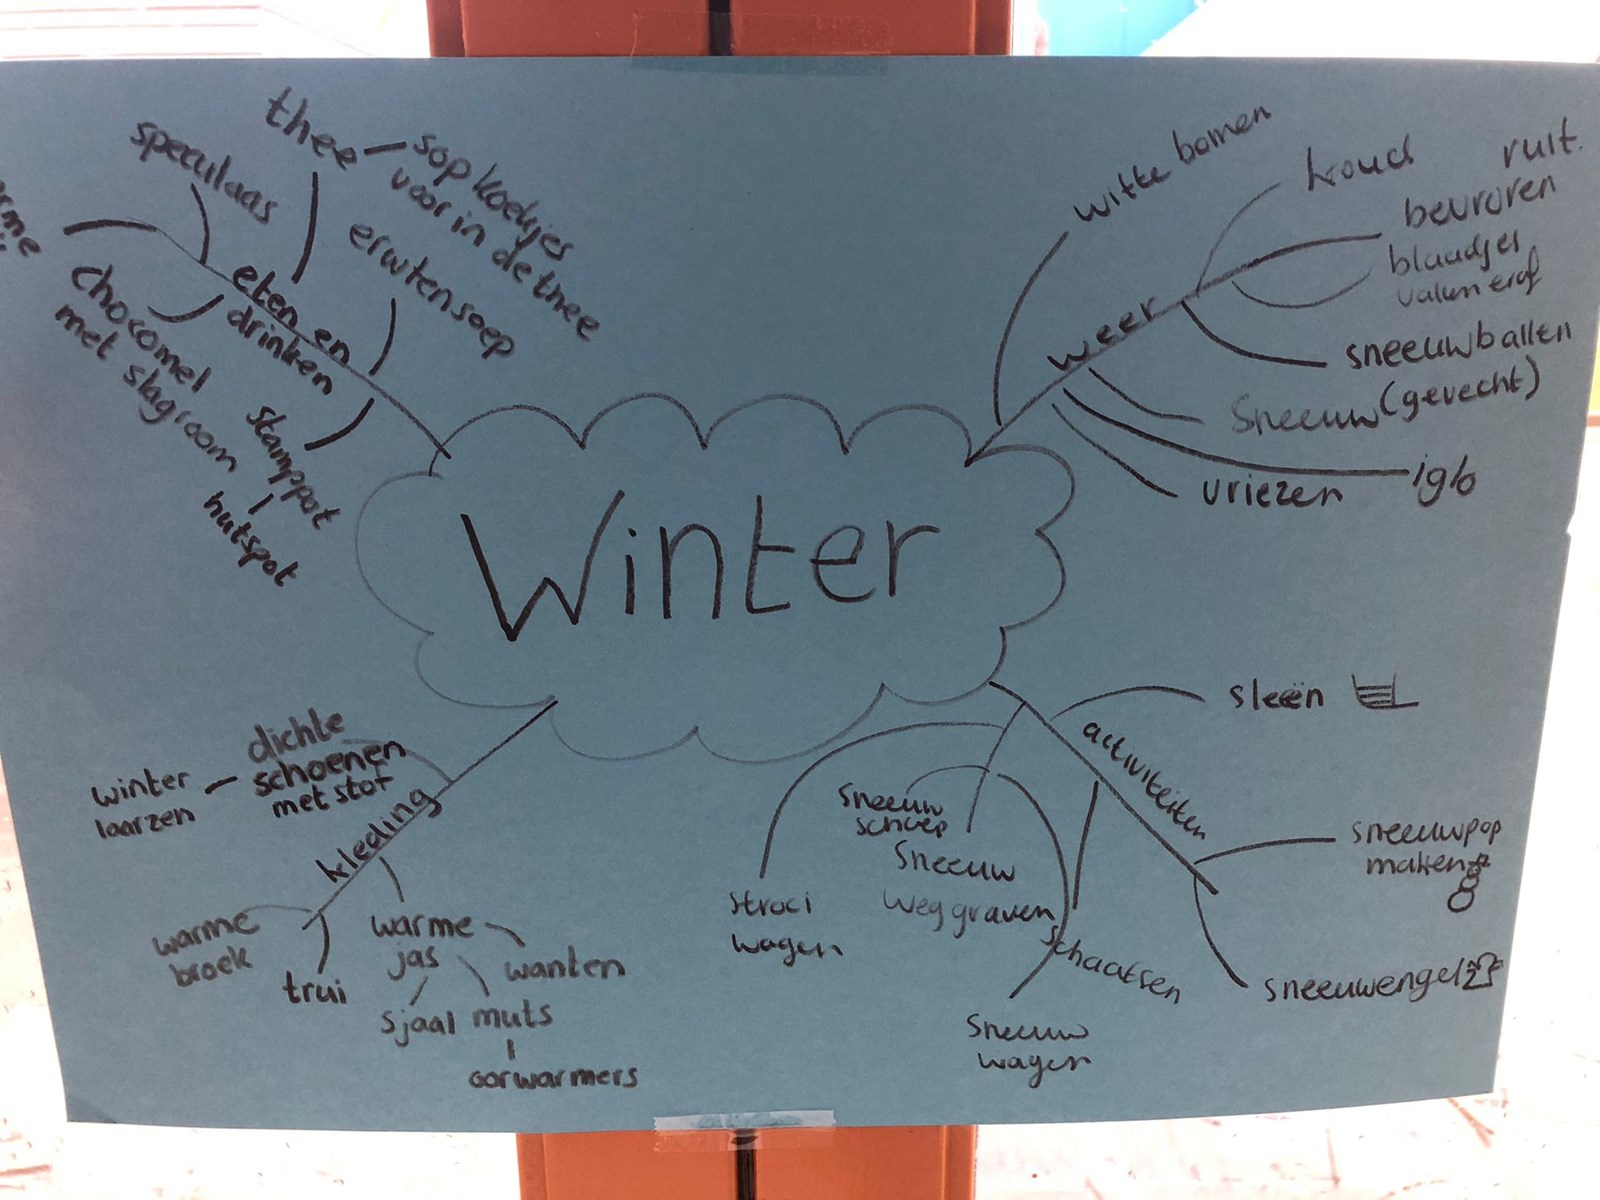 Winter
eten en
drinken
speculaas
thee
sop koekjes
voor in de thee
erwtensoep
chocomel
met slagroom
stamppot
hutspot
weer
witte bomen
koud
ruit.
bevroren
blaadjes
vallen eraf
sneeuwballen
(gevecht)
Sneeuw
iglo
vriezen
kleding
dichte
schoenen
met stof
winter
laarzen
warme
broek
trui
warme
jas
wanten
sjaal
muts
oorwarmers
activiteiten
sleën
sneeuwpop
maken
sneeuwengel
schaatsen
Sneeuw
wagen
Sneeuw
weg graven
sneeuw
schoep
strooi
wagen